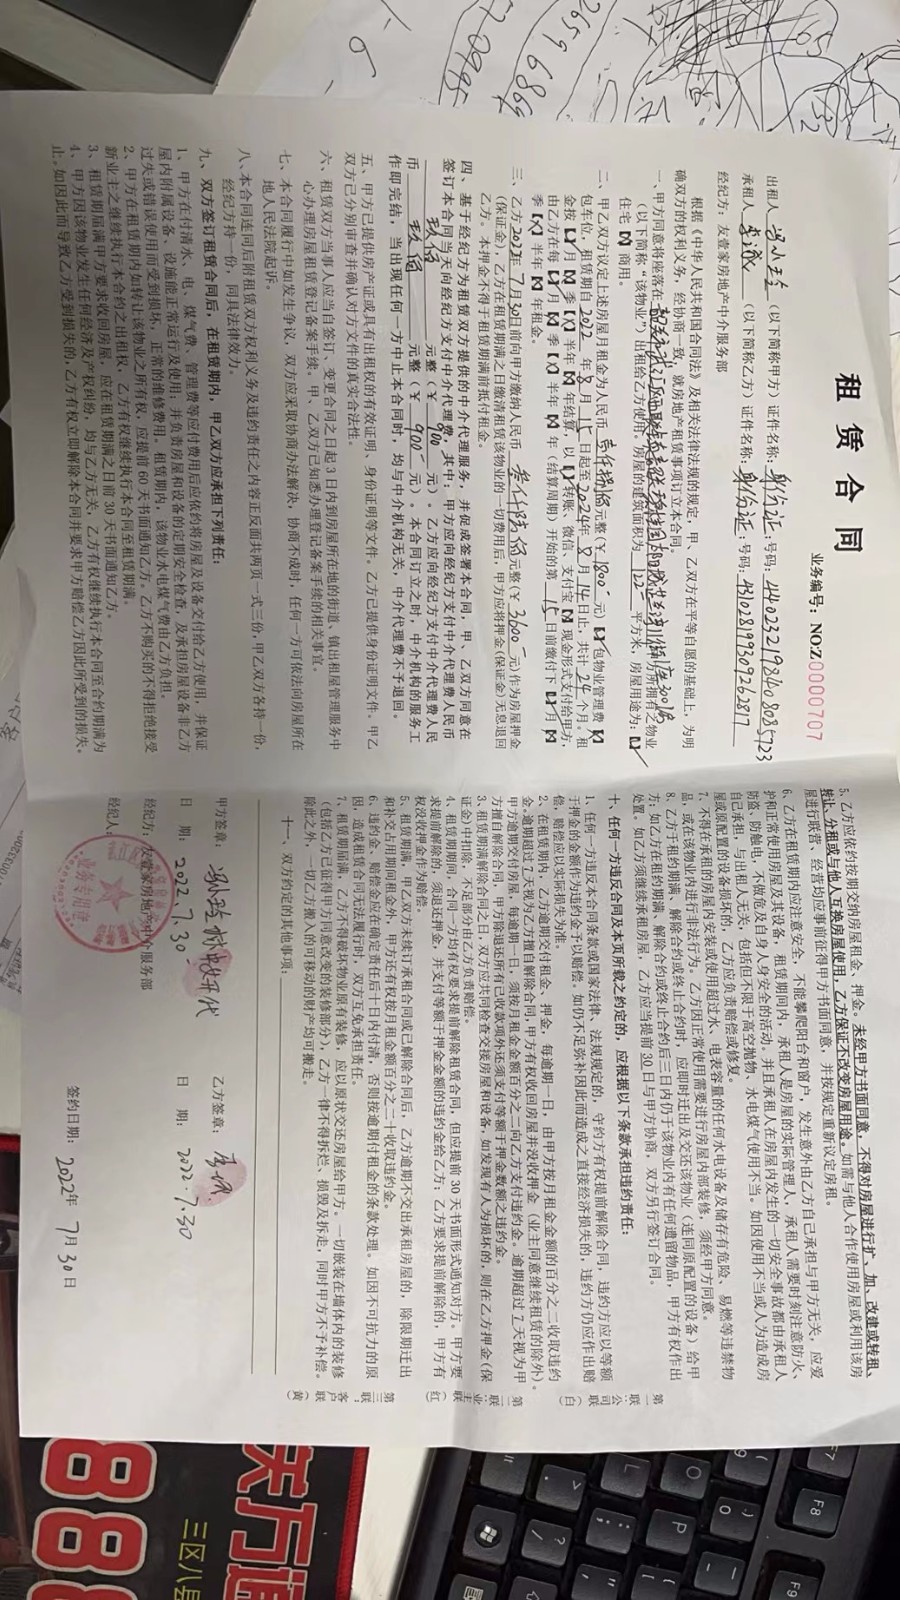 租赁合同
业务编号：NOZ0000707
（以下简称甲方）证件名称：身份证：号码：
承租人 李诚 （以下简称乙方）证件名称：身份证：号码：
经纪方：友壹家房地产中介服务部
根据《中华人民共和国合同法》及相关法律法规的规定，甲、乙双方在平等自愿的基础上，为明
确双方的权利义务，经协商一致，就房地产租赁事项订立本合同。
一、甲方同意将座落在
（以下简称“该物业”）出租给乙方使用。房屋的建筑面积为 122 平方米，房屋用途为：
住宅 商用。
二、甲乙双方议定上述房屋月租金为人民币 壹仟捌佰元整（￥1800 元） 包物业管理费
包车位，租赁期自2022年8月15日起至2024年8月14日止，共计24个月。租
金按 月 季 半年 年结算，以 转账、微信、支付宝 现金形式支付给甲方，
由乙方在每 月 季 半年 年（结算周期）开始的第15日前缴付下 月
季 半年 年租金。
三、乙方2022年7月30日前向甲方缴纳人民币 叁仟陆佰元整（￥3600 元）作为房屋押金
（保证金），乙方在租赁期满之日缴清租赁该物业的一切费用后，甲方应将押金（保证金）无息退回
乙方。本押金不得于租赁期满前抵付租金。
四、基于经纪方为租赁双方提供的中介代理服务，并促成签署本合同，甲、乙双方同意在
签订本合同当天向经纪方支付中介代理费，其中，甲方应向经纪方支付中介代理费人民币
玖佰 元整（￥900 元）。乙方应向经纪方支付中介代理费人民
币 玖佰 元整（￥900 元）。本合同订立之时，中介机构的服务工
作即完结，当出现任何一方中止本合同时，均与中介机构无关，中介代理费不予退回。
五、甲方已提供房产证或具有出租权的有效证明、身份证明等文件。乙方已提供身份证明文件。甲乙
双方已分别审查并确认对方文件的真实合法性。
六、租赁双方当事人应当自签订、变更合同之日起3日内到房屋所在地的街道、镇出租屋管理服务中
心办理房屋租赁登记备案手续。甲、乙双方已知悉办理登记备案手续的相关事宜。
七、本合同履行中如发生争议，双方应采取协商办法解决，协商不成时，任何一方可依法向房屋所在
地人民法院起诉。
八、本合同连同后附租赁双方权利义务及违约责任之内容正反面共两页一式三份，甲乙双方各持一份，
经纪方持一份，同具法律效力。
九、双方签订租赁合同后，在租赁期内，甲乙双方应承担下列责任：
1、甲方在付清水、电、煤气费、管理费等应付费用后应依约将房屋及设备交付给乙方使用，并保证
屋内附属设备、设施能正常运行及使用；并负责房屋和设备的定期安全检查，及承担房屋设备非乙方
过失或错误使用而受到损坏，正常的维修费用。租赁期内，该物业水电煤气费由乙方负担。
2、甲方在租赁期内如转让该物业之所有权，应提前60天书面通知乙方。乙方不购买的不得拒绝接受
新业主之继续执行本合约之出租权，乙方有权继续执行本合同至租赁期满。
3、租赁期届满甲方要求收回房屋，应在租赁期满之日前30天书面通知乙方。
4、甲方因该物业发生任何经济及产权纠纷，均与乙方无关，乙方有权继续执行本合同至合约期满为
止。如因此而导致乙方受到损失的，乙方有权立即解除本合同并要求甲方赔偿乙方因此所受到的损失。
5、乙方应依约按期交纳房屋租金，押金。未经甲方书面同意，不得对房屋进行扩、加、改建或转租、
转让、分租或与他人互换房屋使用，乙方保证不改变房屋用途。如需与他人合作使用房屋或利用该房
屋进行联营、经营均应事前征得甲方书面同意，并按规定重新议定房租。
6、乙方在租赁期内应注意安全，不能攀爬阳台和窗户，发生意外由乙方自己承担与甲方无关。应爱
护和正常使用房屋及其设备，租赁期间内，承租人是房屋的实际管理人，承租人需要时刻注意防火、
防盗、防触电，不做危及自身人身安全的活动，并且承租人在房屋内发生的一切安全事故都由承租人
自己承担，与出租人无关，包括但不限于高空抛物、水电煤气使用不当。如因使用不当或人为造成房
屋或原配置的设备损坏的，乙方应负责赔偿或修复。
7、不得于承租的房屋内安装或使用超过水、电表容量的任何水电设备及储存有危险、易燃等违禁物
品，或在该物业内进行非法行为。乙方因正常使用需要进行房屋内部装修，须经甲方同意。
8、乙方于租约期满，解除合约或终止合约时，应即时迁出及交还该物业（连同原配置的设备）给甲
方；如乙方在租约期满，解除合约或终止合约后三日内仍于该物业内有任何遗留物品，甲方有权作出
处置。如乙方须继续承租房屋，乙方应当提前30日与甲方协商，双方另行签订合同。
十、任何一方违反合同及本页所载之约定的，应根据以下条款承担违约责任：
1、任何一方违反本合同条款或国家法律、法规规定的，守约方有权提前解除合同，违约方应以等额
于押金的金额作为违约金予以赔偿。如仍不足弥补因此而造成之直接经济损失的，违约方仍应作出赔
偿，赔偿应以实际损失为准。
2、在租赁期内，乙方逾期交付租金、押金，每逾期一日，由甲方按月租金金额的百分之二收取违约
金。逾期超过7天视为乙方擅自解除合同，甲方有权收回房屋并没收押金（业主同意继续租赁的除外）。
甲方逾期交付房屋，每逾期一日，须按月租金金额百分之二向乙方支付违约金。逾期超过7天视为甲
方擅自解除合同，甲方除退还所有已收款项外还须支付等额于押金数额之违约金。
3、租赁期满解除合同之日，双方应共同检查交接房屋和设备，如发现有人为损坏的，则在乙方押金（保
证金）中扣除，不足部分由乙方负责赔偿。
4、租赁期期间，合同一方均有权要求提前解除租赁合同，但应提前30天书面形式通知对方。甲方要
求提前解除的，须退还押金，并支付等额于押金金额的违约金给乙方；乙方要求提前解除的，甲方有
权没收押金作为赔偿。
5、租赁期满，甲乙双方未续订承租合同或已解除合同后，乙方逾期不交出承租房屋的，除限期迁出
和补交占用期间租金外，甲方还有权按月租金额百分之二十收取违约金。
6、违约金、赔偿金应在确定责任后十日内付清，否则按逾期付租金的条款处理。如因不可抗力的原
因，造成租赁合同无法履行时，双方互免承担责任。
7、租赁期届满，乙方不得破坏物业原有装修，应以原状交还房屋给甲方。一切嵌装在墙体内的装修
（包括乙方已征得甲方同意改变的装修部分），乙方一律不得拆烂、损毁及拆走，同时甲方不予补偿。
除此之外，一切乙方搬入的可移动的财产均可搬走。
十一、双方约定的其他事项：
甲方签章： 乙方签章： 李诚
日 期：2022.7.30 日 期：2022.7.30
经纪方：友壹家房地产中介服务部
经纪人： 签约日期：2022年7月30日
业务专用章
第一联：公司联（白）
第二联：业主联（红）
第三联：客户联（黄）
关万通
三区八县
888
F7
F8
F9
P
O
L